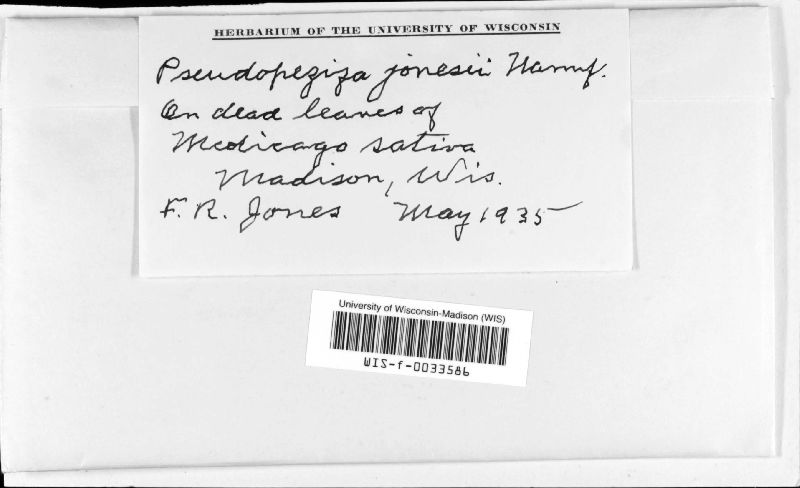 HERBARIUM OF THE UNIVERSITY OF WISCONSIN
Pseudopeziza jonesii Nannf.
On dead leaves of
Medicago sativa
Madison, Wis.
F. R. Jones May 1935
University of Wisconsin-Madison (WIS)
WIS-f-0033586